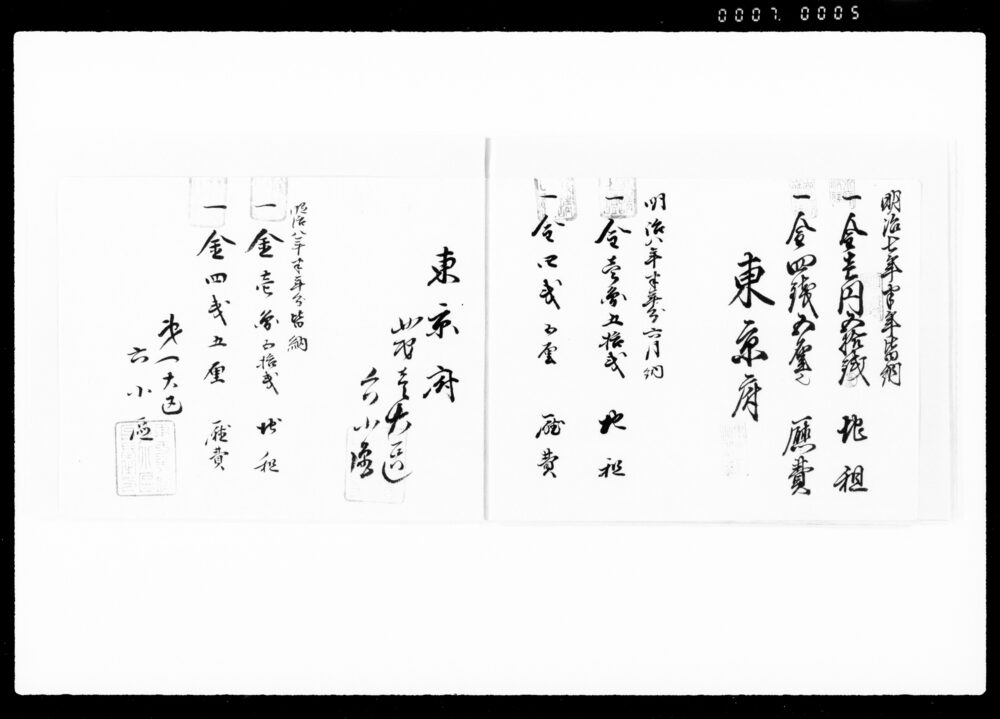 0007. 0005
明治七年半年皆納
一金壱円五拾銭 地租
一金四銭五厘 廳費
東京府
明治八年半年分六月納
一金壱 五拾銭 地租
一金四銭五厘 廳費
東京府
第壱大区
六小區
明治八年半年分皆納
一金壱 五拾銭 地租
一金四銭五厘 廳費
第一大区
六小區